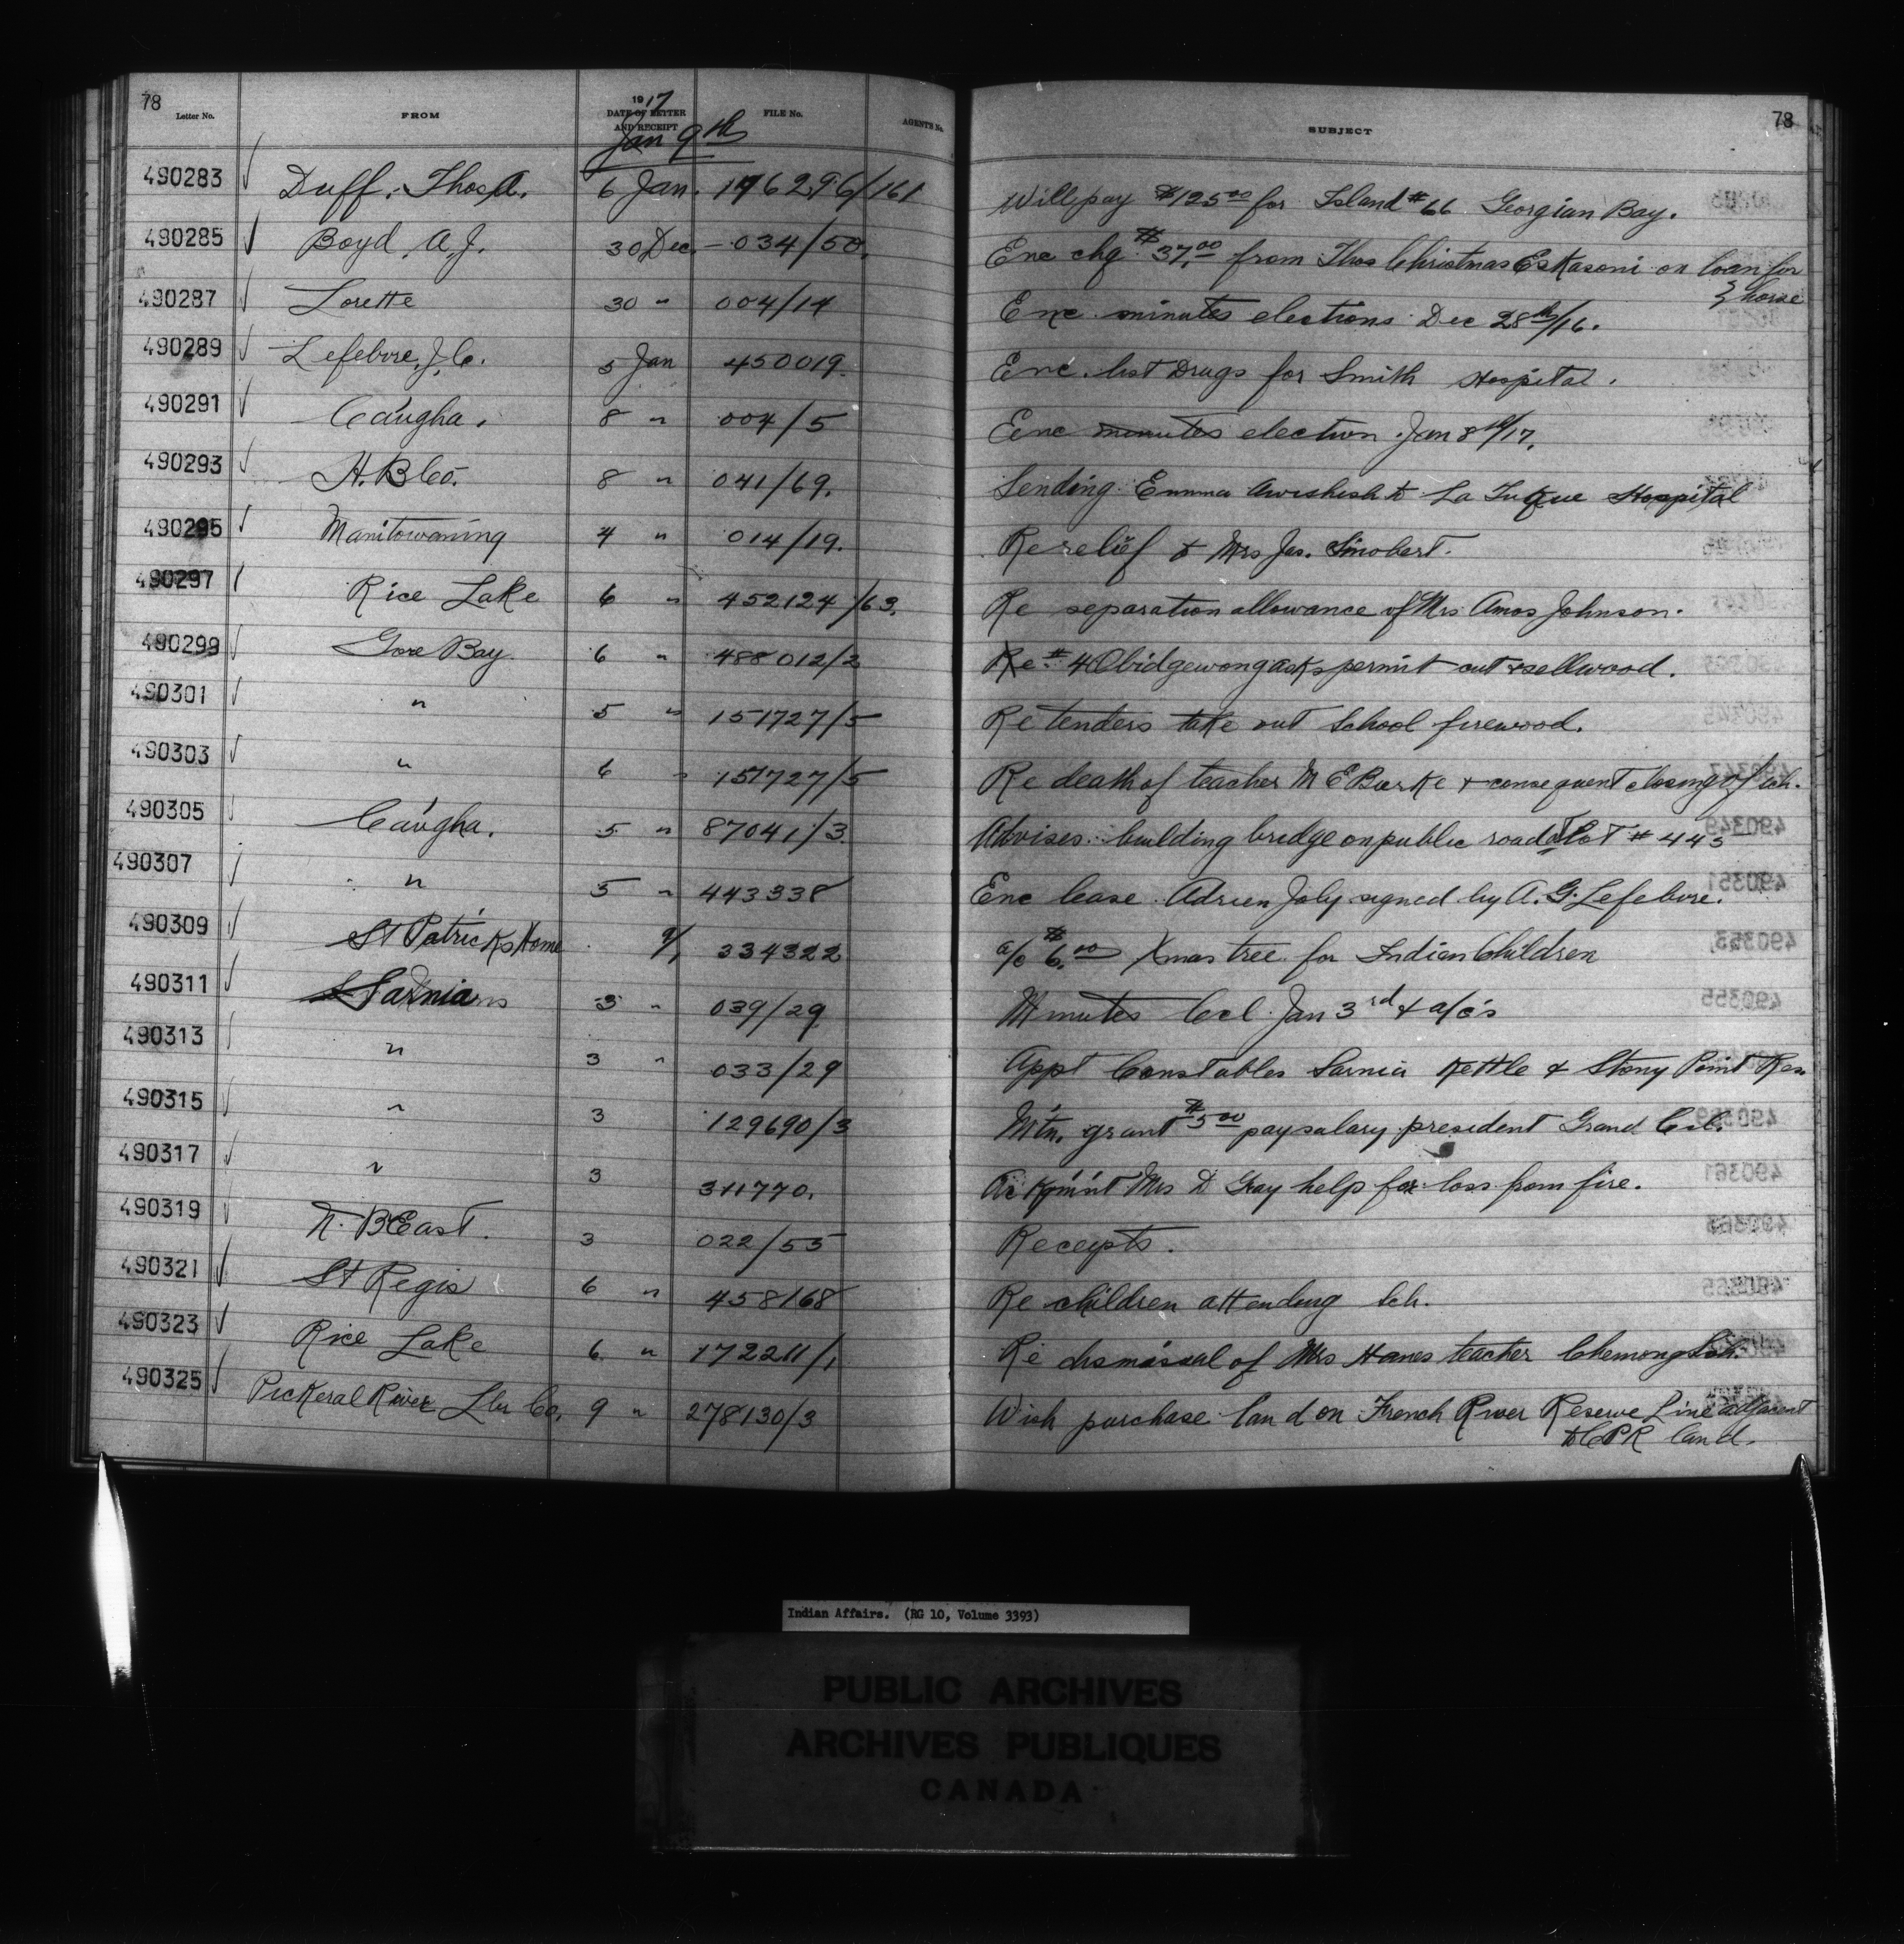 78
Letter No. FROM 1917 DATE OF LETTER AND RECEIPT FILE No. AGENT'S No. SUBJECT 78
Jan 9th
490283 Duff, Thos. A. 6 Jan. 176296/161 Will pay $125.00 for Island #66 Georgian Bay.
490285 Boyd, A.J. 30 Dec. 034/50. Enc chq $37.00 from Thos Christmas Eskasoni on loan for horse
490287 Lorette 30 " 004/14 Enc. minutes elections Dec 28th/16.
490289 Lefebvre, J.C. 5 Jan 450019. Enc. list Drugs for Smith Hospital.
490291 Cau'gha. 8 " 004/5 Enc minutes election Jan 8th/17.
490293 H.B.Co. 8 " 041/69. Sending Emma Awishish to La Tuque Hospital
490295 Manitowaning 4 " 014/19. Re relief to Mrs Jas.
490297 Rice Lake 6 " 452124/63. Re separation allowance of Mrs Amos Johnson.
490299 Gore Bay 6 " 488012/2 Re #4 Obidgewong asks permit cut & sell wood.
490301 " 5 " 151727/5 Re tenders take out School firewood.
490303 " 6 " 151727/5 Re death of teacher M E Burke & consequent closing of sch.
490305 Cau'gha. 5 " 87041/3. Advises building bridge on public road at Lot #443
490307 " 5 " 443338 Enc lease Adrien Joly signed by A.G. Lefebvre.
490309 St Patricks Home 9/1 334322 a/c $6.00 Xmas tree for Indian Children
490311 Sarnia 3 " 039/29 Minutes Ccl. Jan 3rd & a/c's
490313 " 3 " 033/29 Appt Constables Sarnia Kettle & Stony Point Res
490315 " 3 129690/3 Mtn. grant $5.00 pay salary president Grand Ccl.
490317 " 3 311770. Ackgm'nt Mrs D Gray help for loss from fire.
490319 N. B East. 3 022/55 Receipts.
490321 St Regis 6 " 458168 Re children attending Sch.
490323 Rice Lake 6 " 172211/1 Re dismissal of Mrs Hanes teacher Chemong Sch.
490325 Pickeral River Lbr Co. 9 " 278130/3 Wish purchase land on French River Reserve Line adjacent
to CPR land.
Indian Affairs. (RG 10, Volume 3393)
PUBLIC ARCHIVES
ARCHIVES PUBLIQUES
CANADA